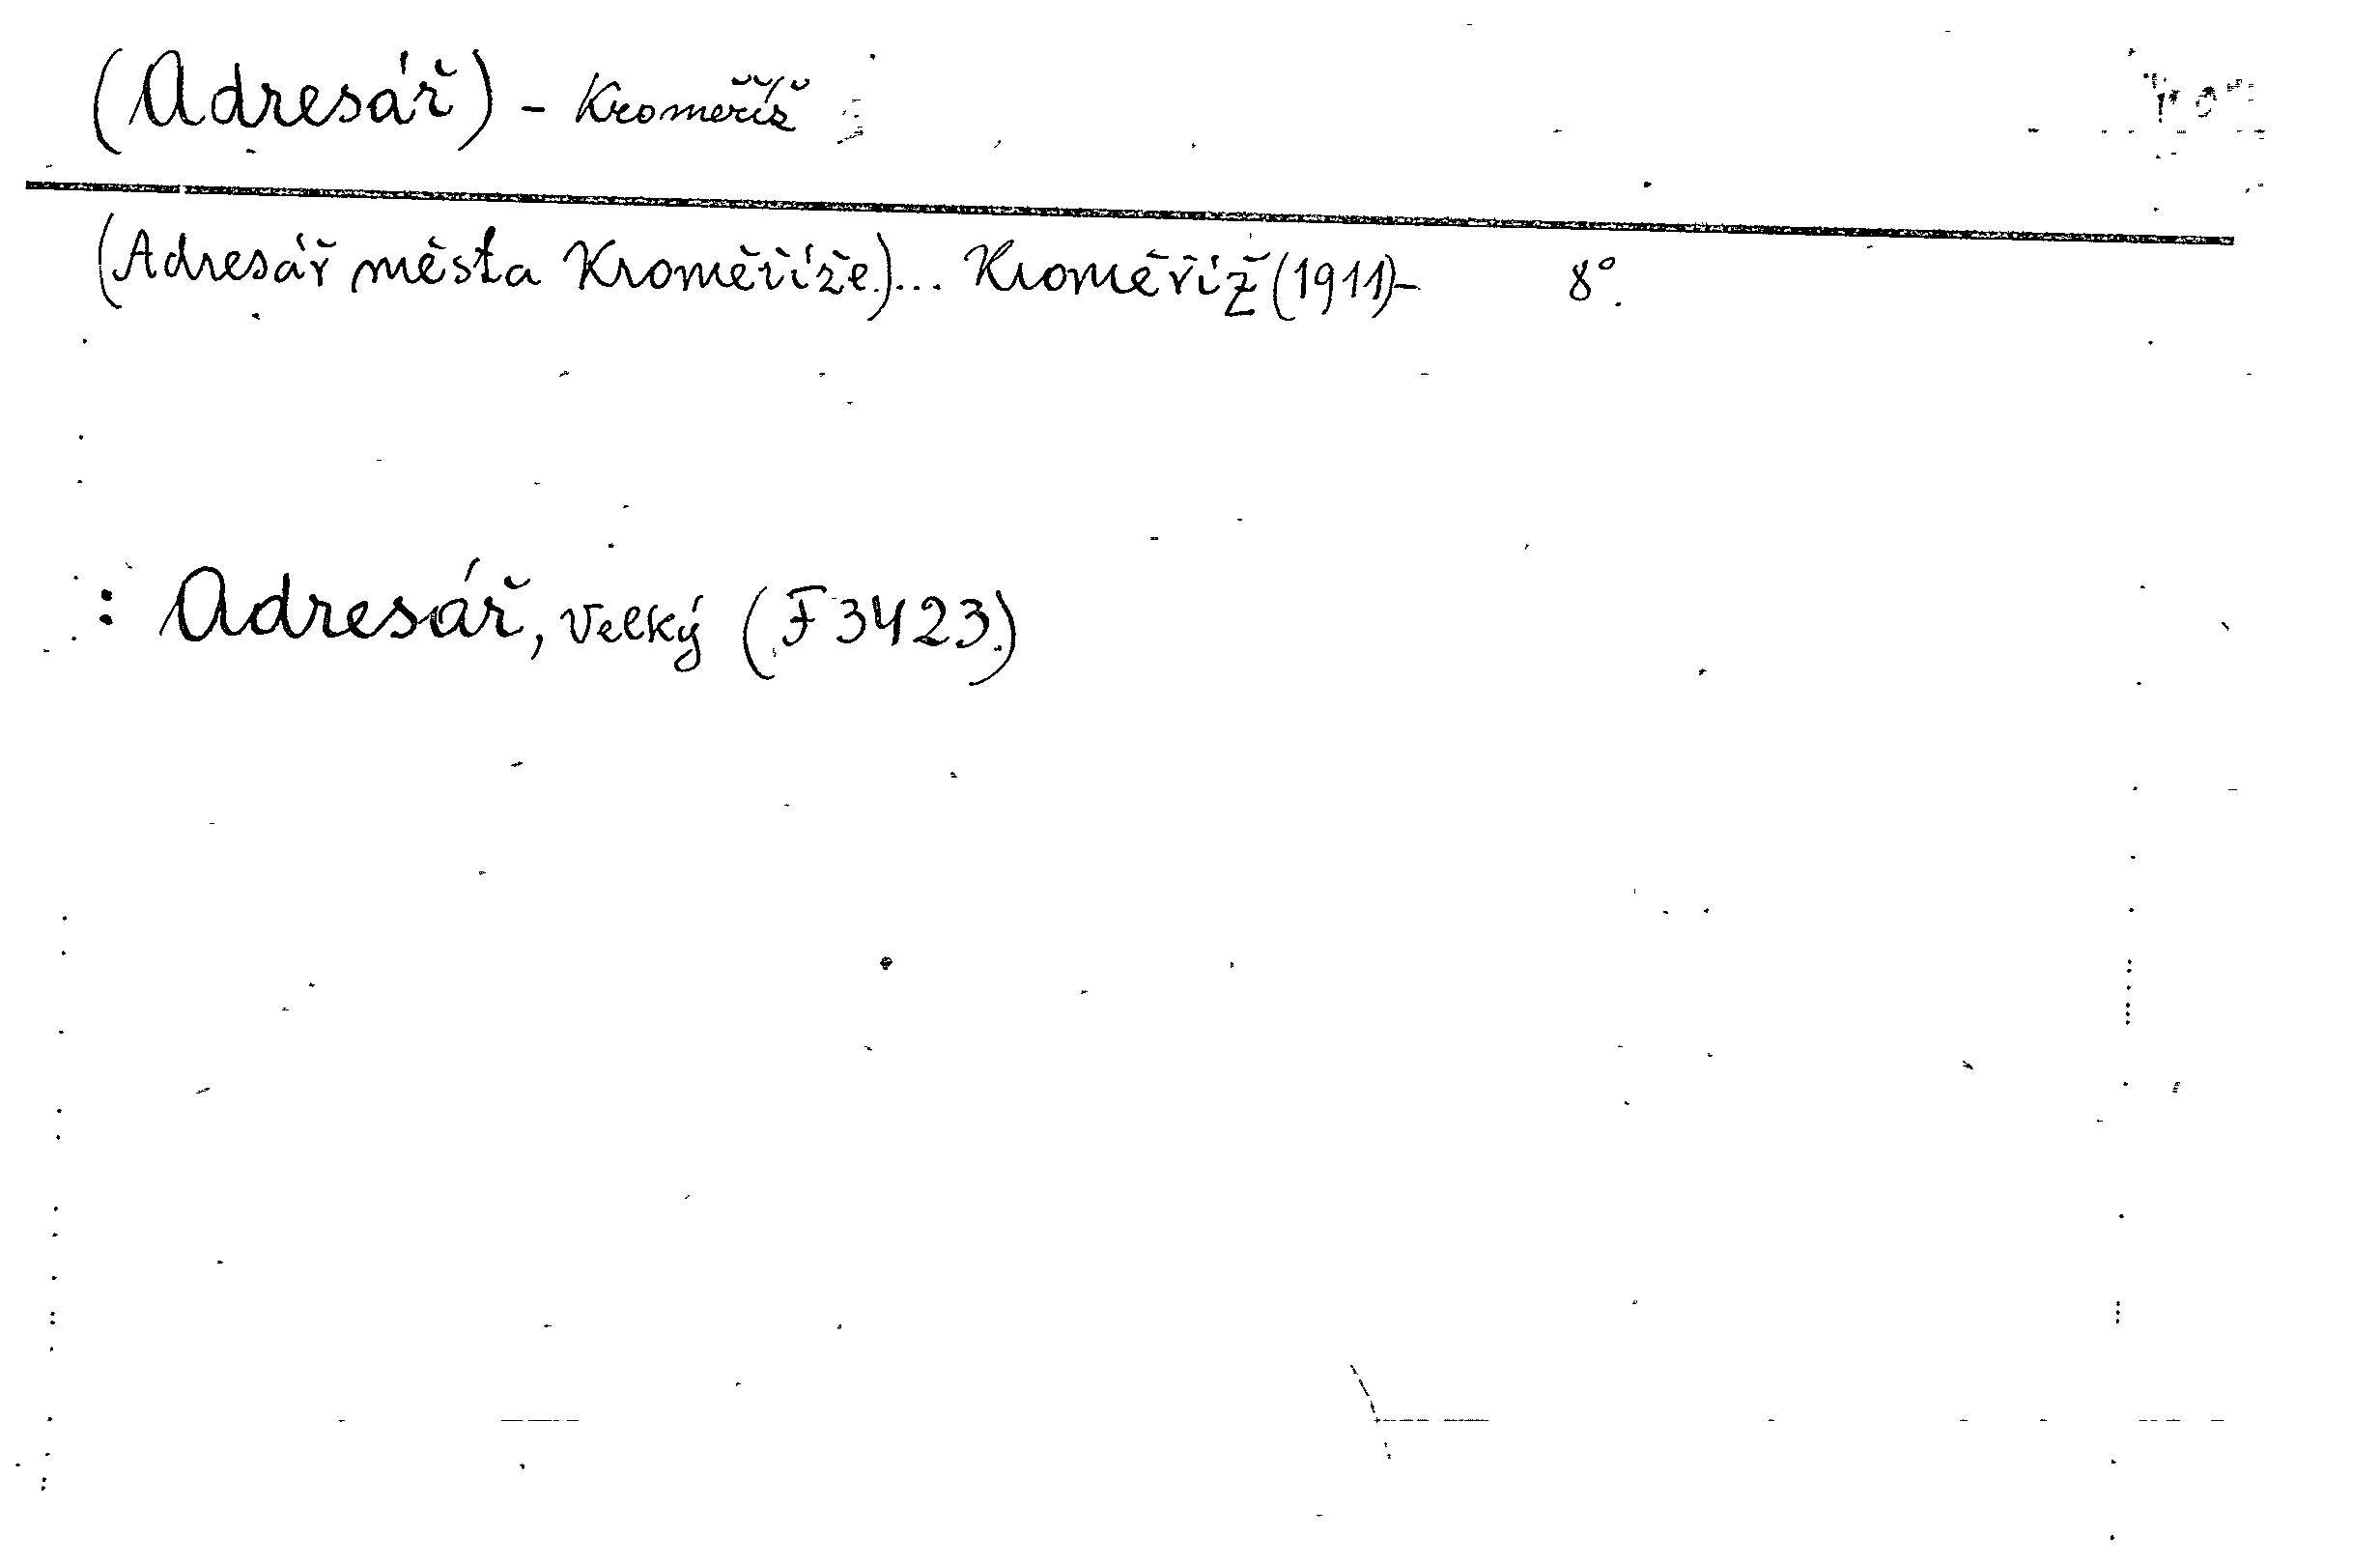 (Adresář) - Kroměříž
(Adresář města Kroměříže.)... Kroměříž (1911)- 8°.
: Adresář, Velký (F 3423.)